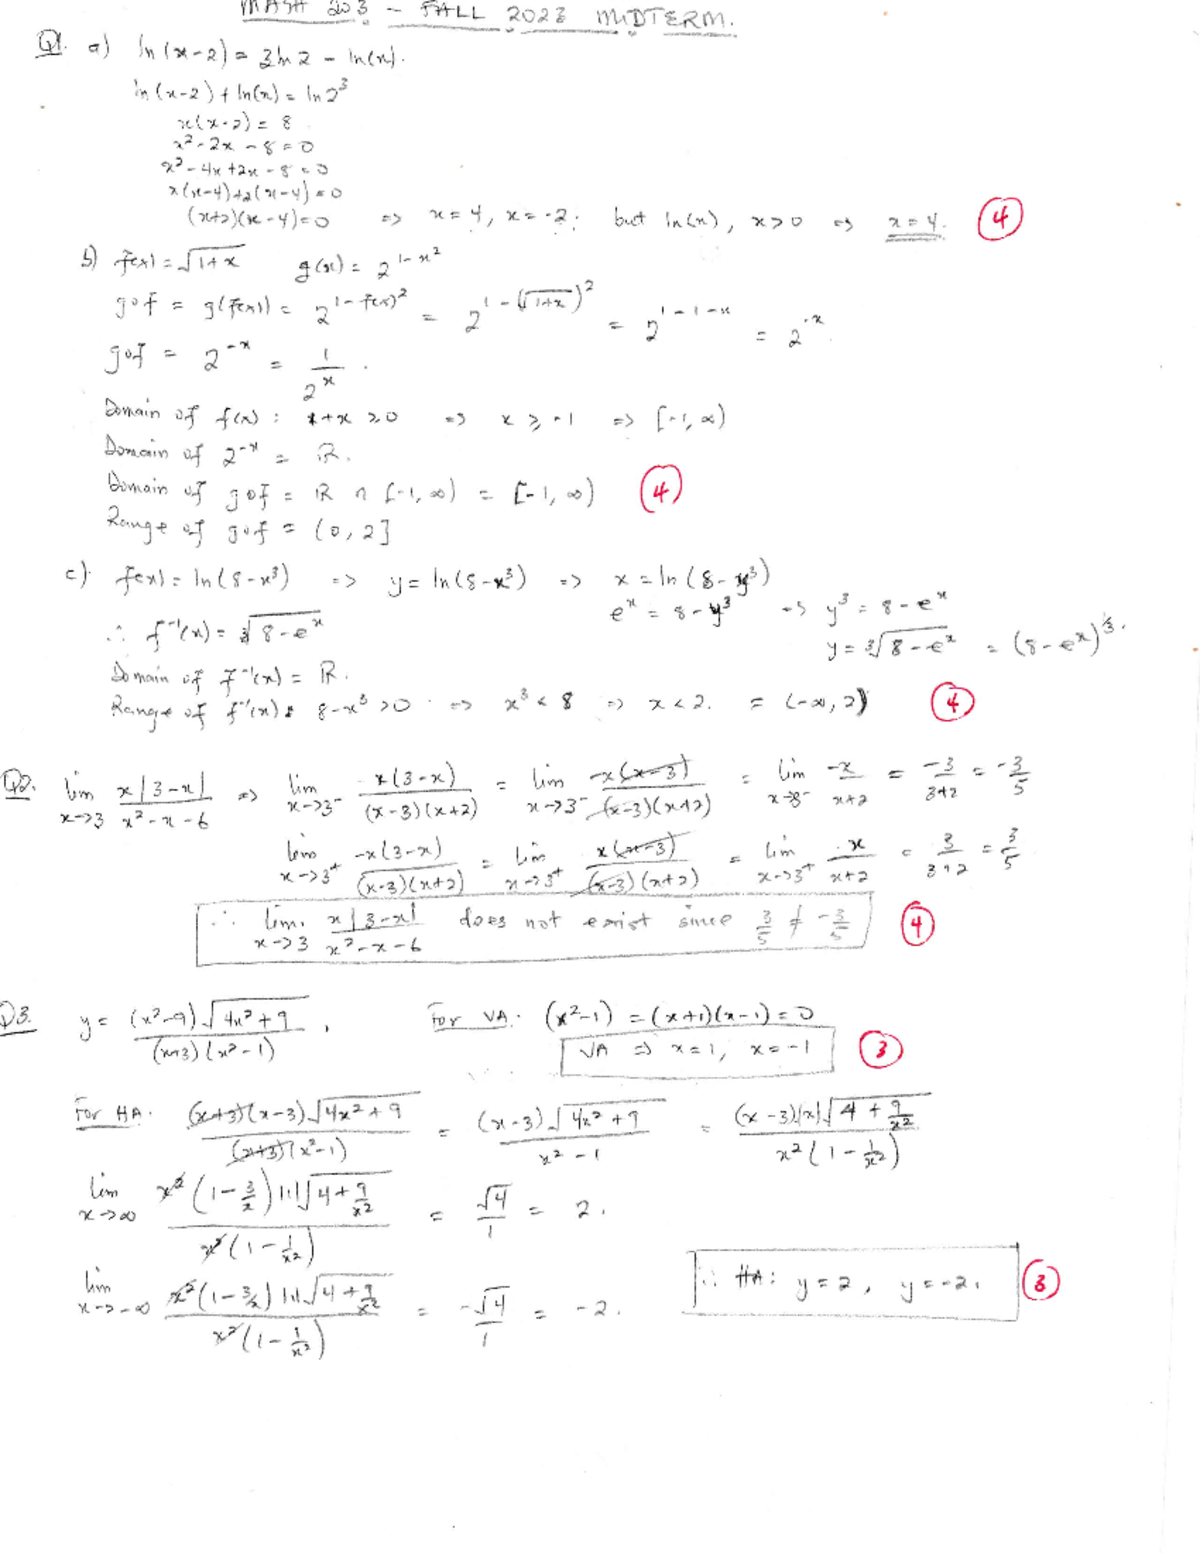 MATH 203 - FALL 2023 MIDTERM.
Q1. a) ln(x-2) = 3ln2 - ln(x).
ln(x-2) + ln(x) = ln2³
x(x-2) = 8
x² - 2x - 8 = 0
x² - 4x + 2x - 8 = 0
x(x-4)+2(x-4) = 0
(x+2)(x-4) = 0 => x = 4, x = -2. but ln(x), x>0 => x = 4. (4)
b) f(x) = √(1+x) g(x) = 2^(1-x²)
gof = g(f(x)) = 2^(1-f(x)²) = 2^(1-(√(1+x))²) = 2^(1-1-x) = 2^(-x).
gof = 2^(-x) = 1/2^x.
Domain of f(x) : 1+x ≥ 0 => x ≥ -1 => [-1, ∞)
Domain of 2^(-x) = ℝ.
Domain of gof = ℝ ∩ [-1, ∞) = [-1, ∞) (4)
Range of gof = (0, 2]
c) f(x) = ln(8-x³) => y = ln(8-x³) => x = ln(8-y³)
e^x = 8-y³ => y³ = 8-e^x
∴ f⁻¹(x) = ∛(8-e^x) y = ∛(8-e^x) = (8-e^x)^(1/3).
Domain of f⁻¹(x) = ℝ.
Range of f⁻¹(x): 8-x³ > 0 => x³ < 8 => x < 2. = (-∞, 2) (4)
Q2. lim x→3 x|3-x| / (x²-x-6) => lim x→3⁻ x(3-x) / ((x-3)(x+2)) = lim x→3⁻ -x(x-3) / ((x-3)(x+2)) = lim x→3⁻ -x/(x+2) = -3/(3+2) = -3/5
lim x→3⁺ -x(3-x) / ((x-3)(x+2)) = lim x→3⁺ x(x-3) / ((x-3)(x+2)) = lim x→3⁺ x/(x+2) = 3/(3+2) = 3/5
∴ lim. x→3 x|3-x| / (x²-x-6) does not exist since 3/5 ≠ -3/5 (4)
Q3. y = (x²-9)√(4x²+9) / ((x+3)(x²-1)), For VA. (x²-1) = (x+1)(x-1) = 0
VA => x = 1, x = -1 (3)
For HA. (x+3)(x-3)√(4x²+9) / ((x+3)(x²-1)) = (x-3)√(4x²+9) / (x²-1) = (x-3)|x|√(4+9/x²) / (x²(1-1/x²))
lim x→∞ x²(1-3/x)|1|√(4+9/x²) / (x²(1-1/x²)) = √4/1 = 2.
lim x→-∞ x²(1-3/x)|1|√(4+9/x²) / (x²(1-1/x²)) = -√4/1 = -2.
∴ HA: y = 2, y = -2. (3)